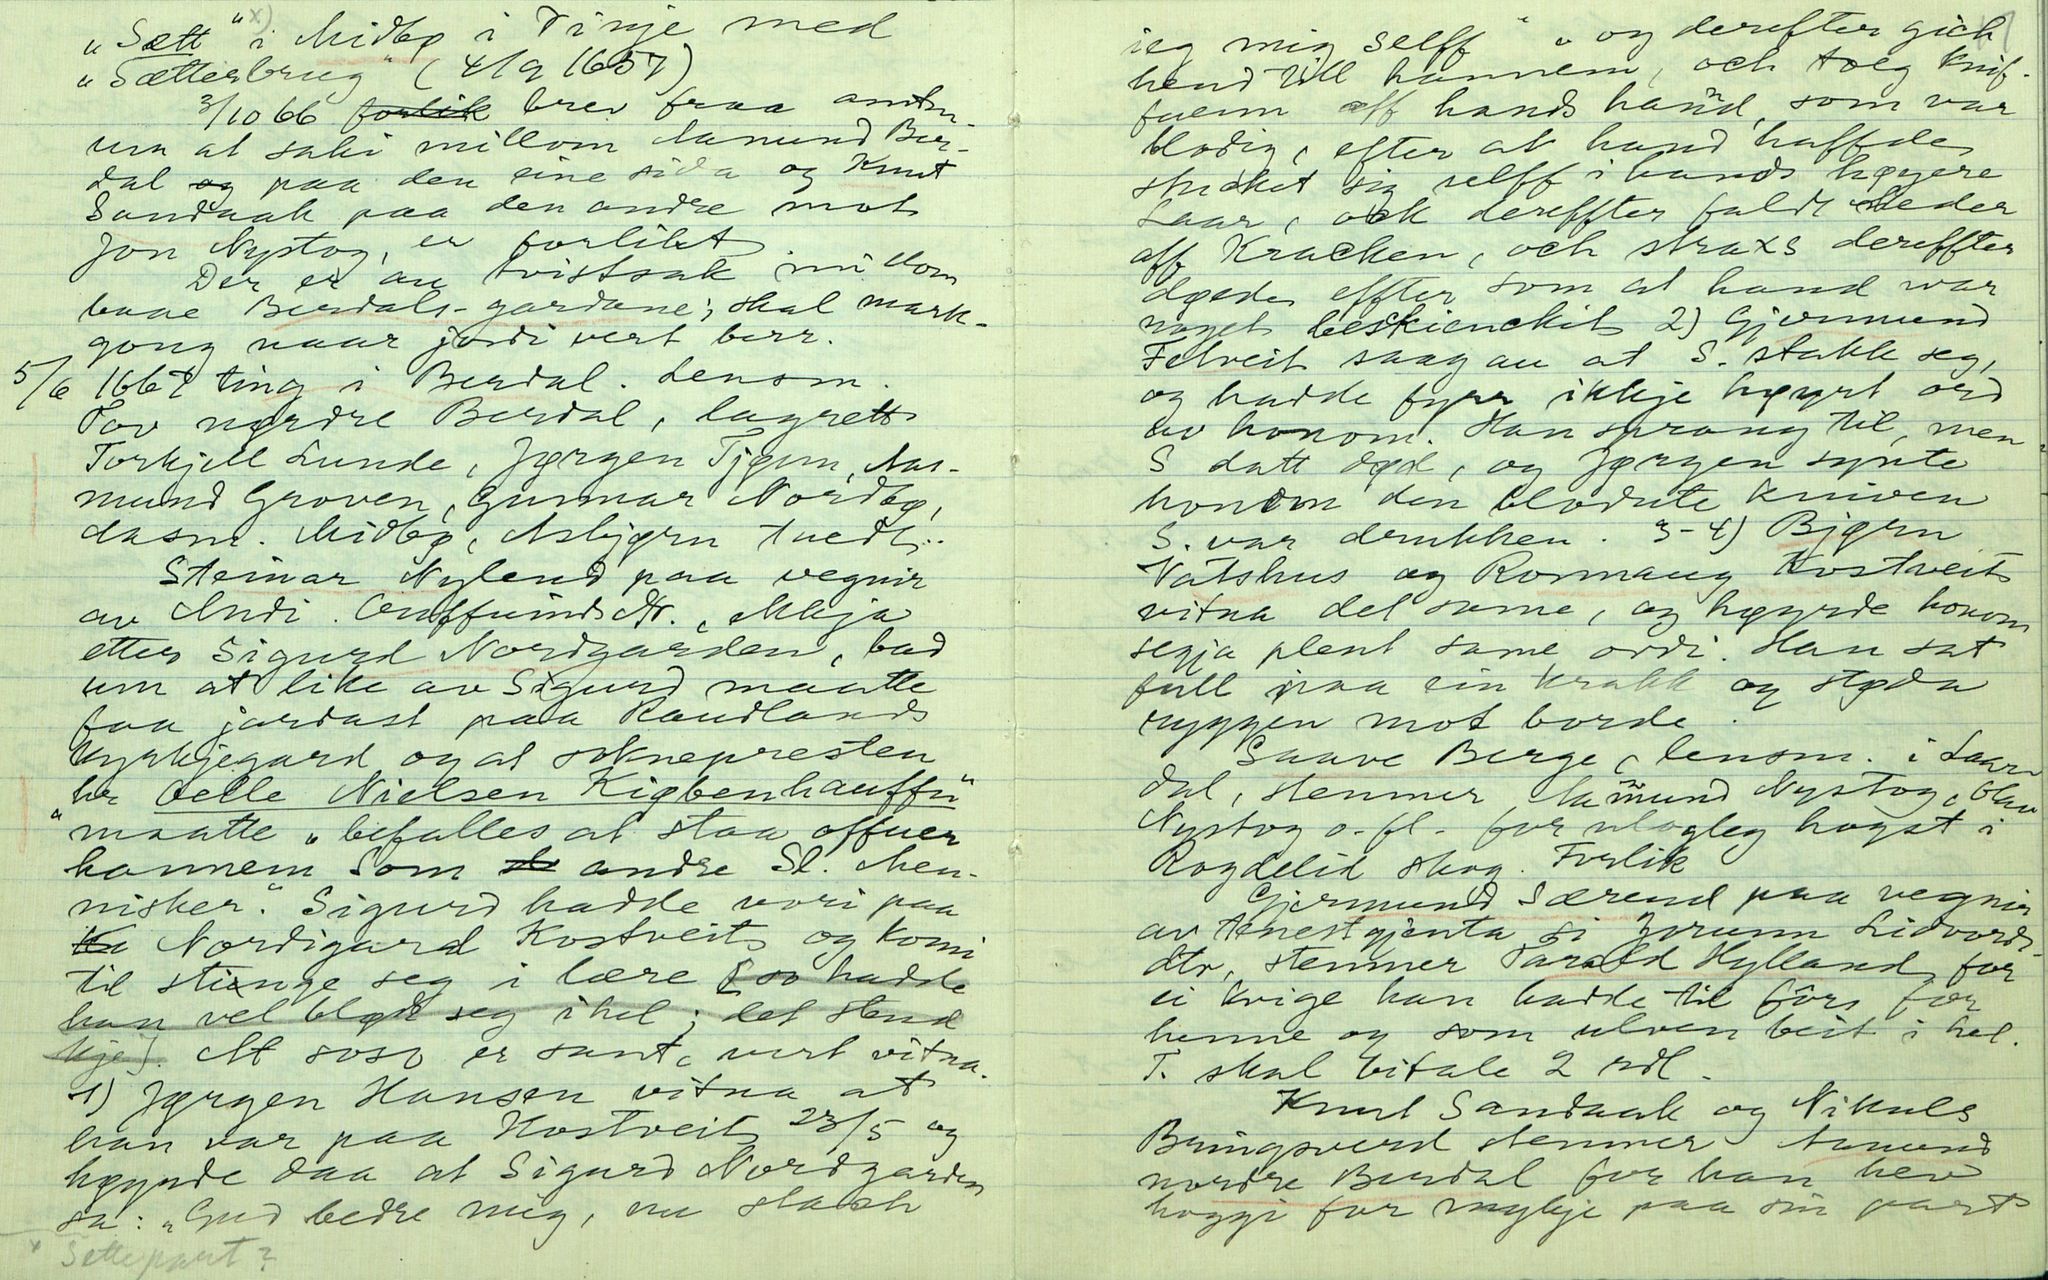 „Sætt“ x) i Midbø i Vinje med
„Sætterbrug“ (4/9 1657)
3/10 66 forlik brev fraa andr-
um at saki millom Aamund Ber-
dal og paa den eine sida og Knut
Sandaak paa den andre mot
Jon Nystog, er forlikt
Der er au tvistsak millom
baae Berdals-gardane; skal mark-
gong naar jordi vert berr.
5/6 1667 ting i Berdal. Lensm.
Tov nørdre Berdal, lagrett
Torkjell Lunde, Jørgen Tjønn, Aas-
mund Groven, Gunnar Nordbø,
Aasm. Midbø, Asbjørn Tvedt..
Steinar Nylend paa vegnir
av Andi Ouffuinds Dtr., ekkja
etter Sigurd Nordgarden, bad
um at like av Sigurd maatte
faa jordast paa Raudlands
kyrkjegard og at soknepresten
hr Oelle Nielsen Kiøbenhauffn“
“maatte „befalles at staa offuer
hannem som andre Sl. Men-
nisker“. Sigurd hadde vori paa
Nordigard Kostveit og komi
til stinge seg i lære (so hadde
han vel blødt seg ihel; det stend
kje). At soso er sant, vert vitna.
1) Jørgen Hansen vitna at
han var paa Kostveit 23/5 og
høyrde daa at Sigurd Nordgarden
sa: „Gud bedre mig, nu stach
x Settepart?
ieg mig selff“ „og derefter gich
hend till hannem, och toeg knif-
fuenn aff hands hannd, som var
blodig, efter at hand haffde
stucket sig selff i hands høyere
Laar, ock dereffter faldt neder
aff Kracken, och straxs dereffter
døede, effter som at hand war
noget beskienckit 2) Gjermund
Felveit saag au at S. stakk seg,
og hadde fyrr ikkje høyrt ord
av honom. Han sprang til, men
S datt død, og Jørgen synte
honom den blodute kniven
S. var drukken. 3-4) Bjørn
Våtshus og Romaug Kostveit
vitna det same, og høyrde honom
segja plent same ordi. Han sat
full paa ein krakk og støda
ryggen mot borde.
Saave Berge, lensm. i Laar-
dal, stemner Aamund Nystog, Olav
Nystog o. fl. for ulogleg hogst i
Rogdelid skog. Forlik
Gjermund Særend paa vegnir
av tenestgjenta si Jorunn Lidvords
dtr, stemner Tarald Hylland for
ei kvige han hadde til fôrs for
henne og som ulven beit i hel.
T. skal bitale 2 rdl.
Knut Sandaak og Nikuls
Bringsverd stemner Aamund
nordre Berdal for han hev
hoggi for mykje paa sin part